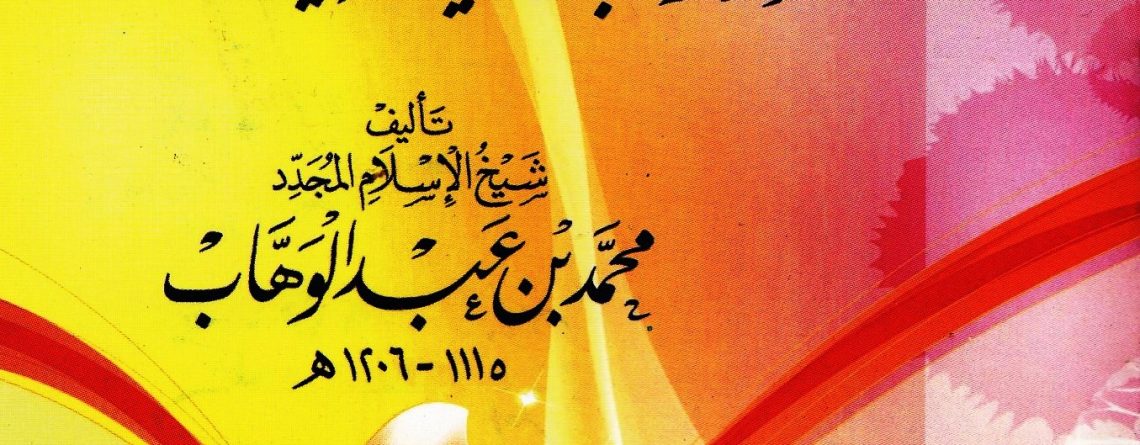 تَأليفْ
شَيْخُ الْإِسْلَامِ المُجَدِّد
محمَّد بْن عَبْد الوَهَّابْ
١١١٥ - ١٢٠٦ هـ